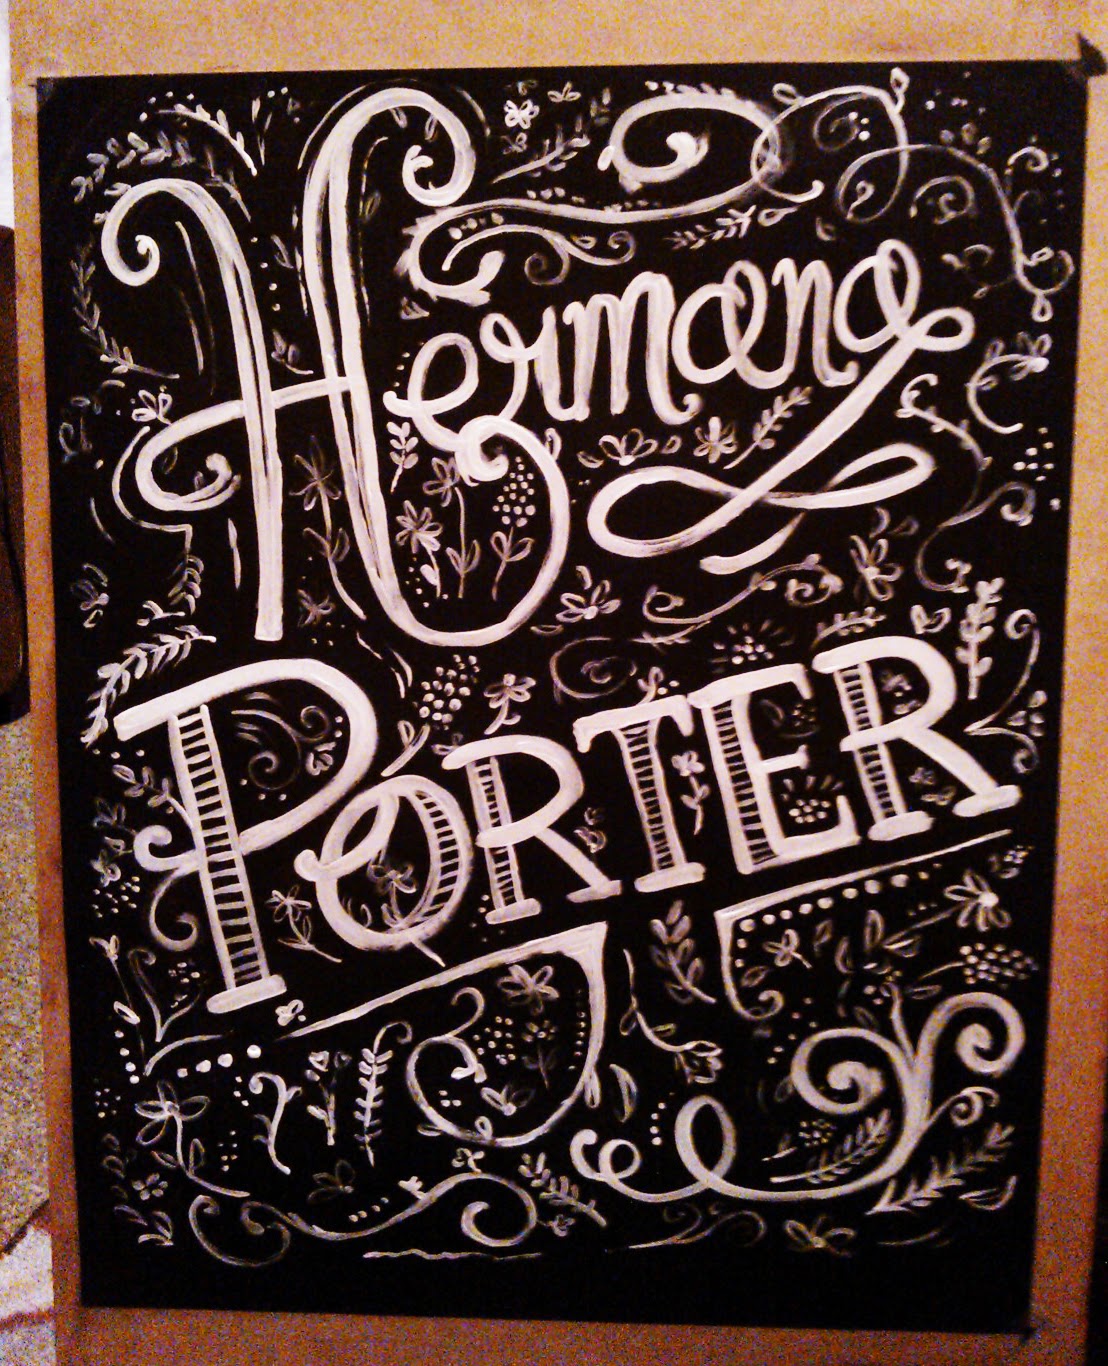 Hermana
PORTER